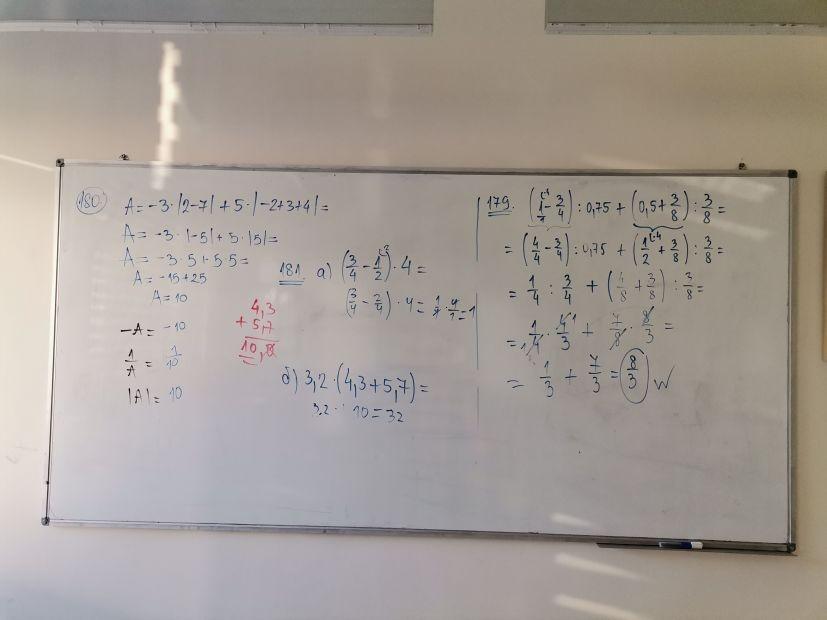 180.
A = -3·|2-7| + 5·|-2+3+4| =
A = -3·|-5| + 5·|5| =
A = -3·5 + 5·5 =
A = -15 + 25
A = 10
-A = -10
1/A = 1/10
|A| = 10
4,3
+ 5,7
10,0
181. а) (3/4 - 1/2)·4 =
(3/4 - 2/4)·4 = 1/4 · 4/1 = 1
б) 3,2·(4,3+5,7) =
3,2 · 10 = 32
179. (1/1 - 3/4) : 0,75 + (0,5 + 3/8) : 3/8 =
= (4/4 - 3/4) : 0,75 + (1/2 + 3/8) : 3/8 =
= 1/4 : 3/4 + (4/8 + 3/8) : 3/8 =
= 1/4 · 4/3 + 7/8 · 8/3 =
= 1/3 + 7/3 = 8/3